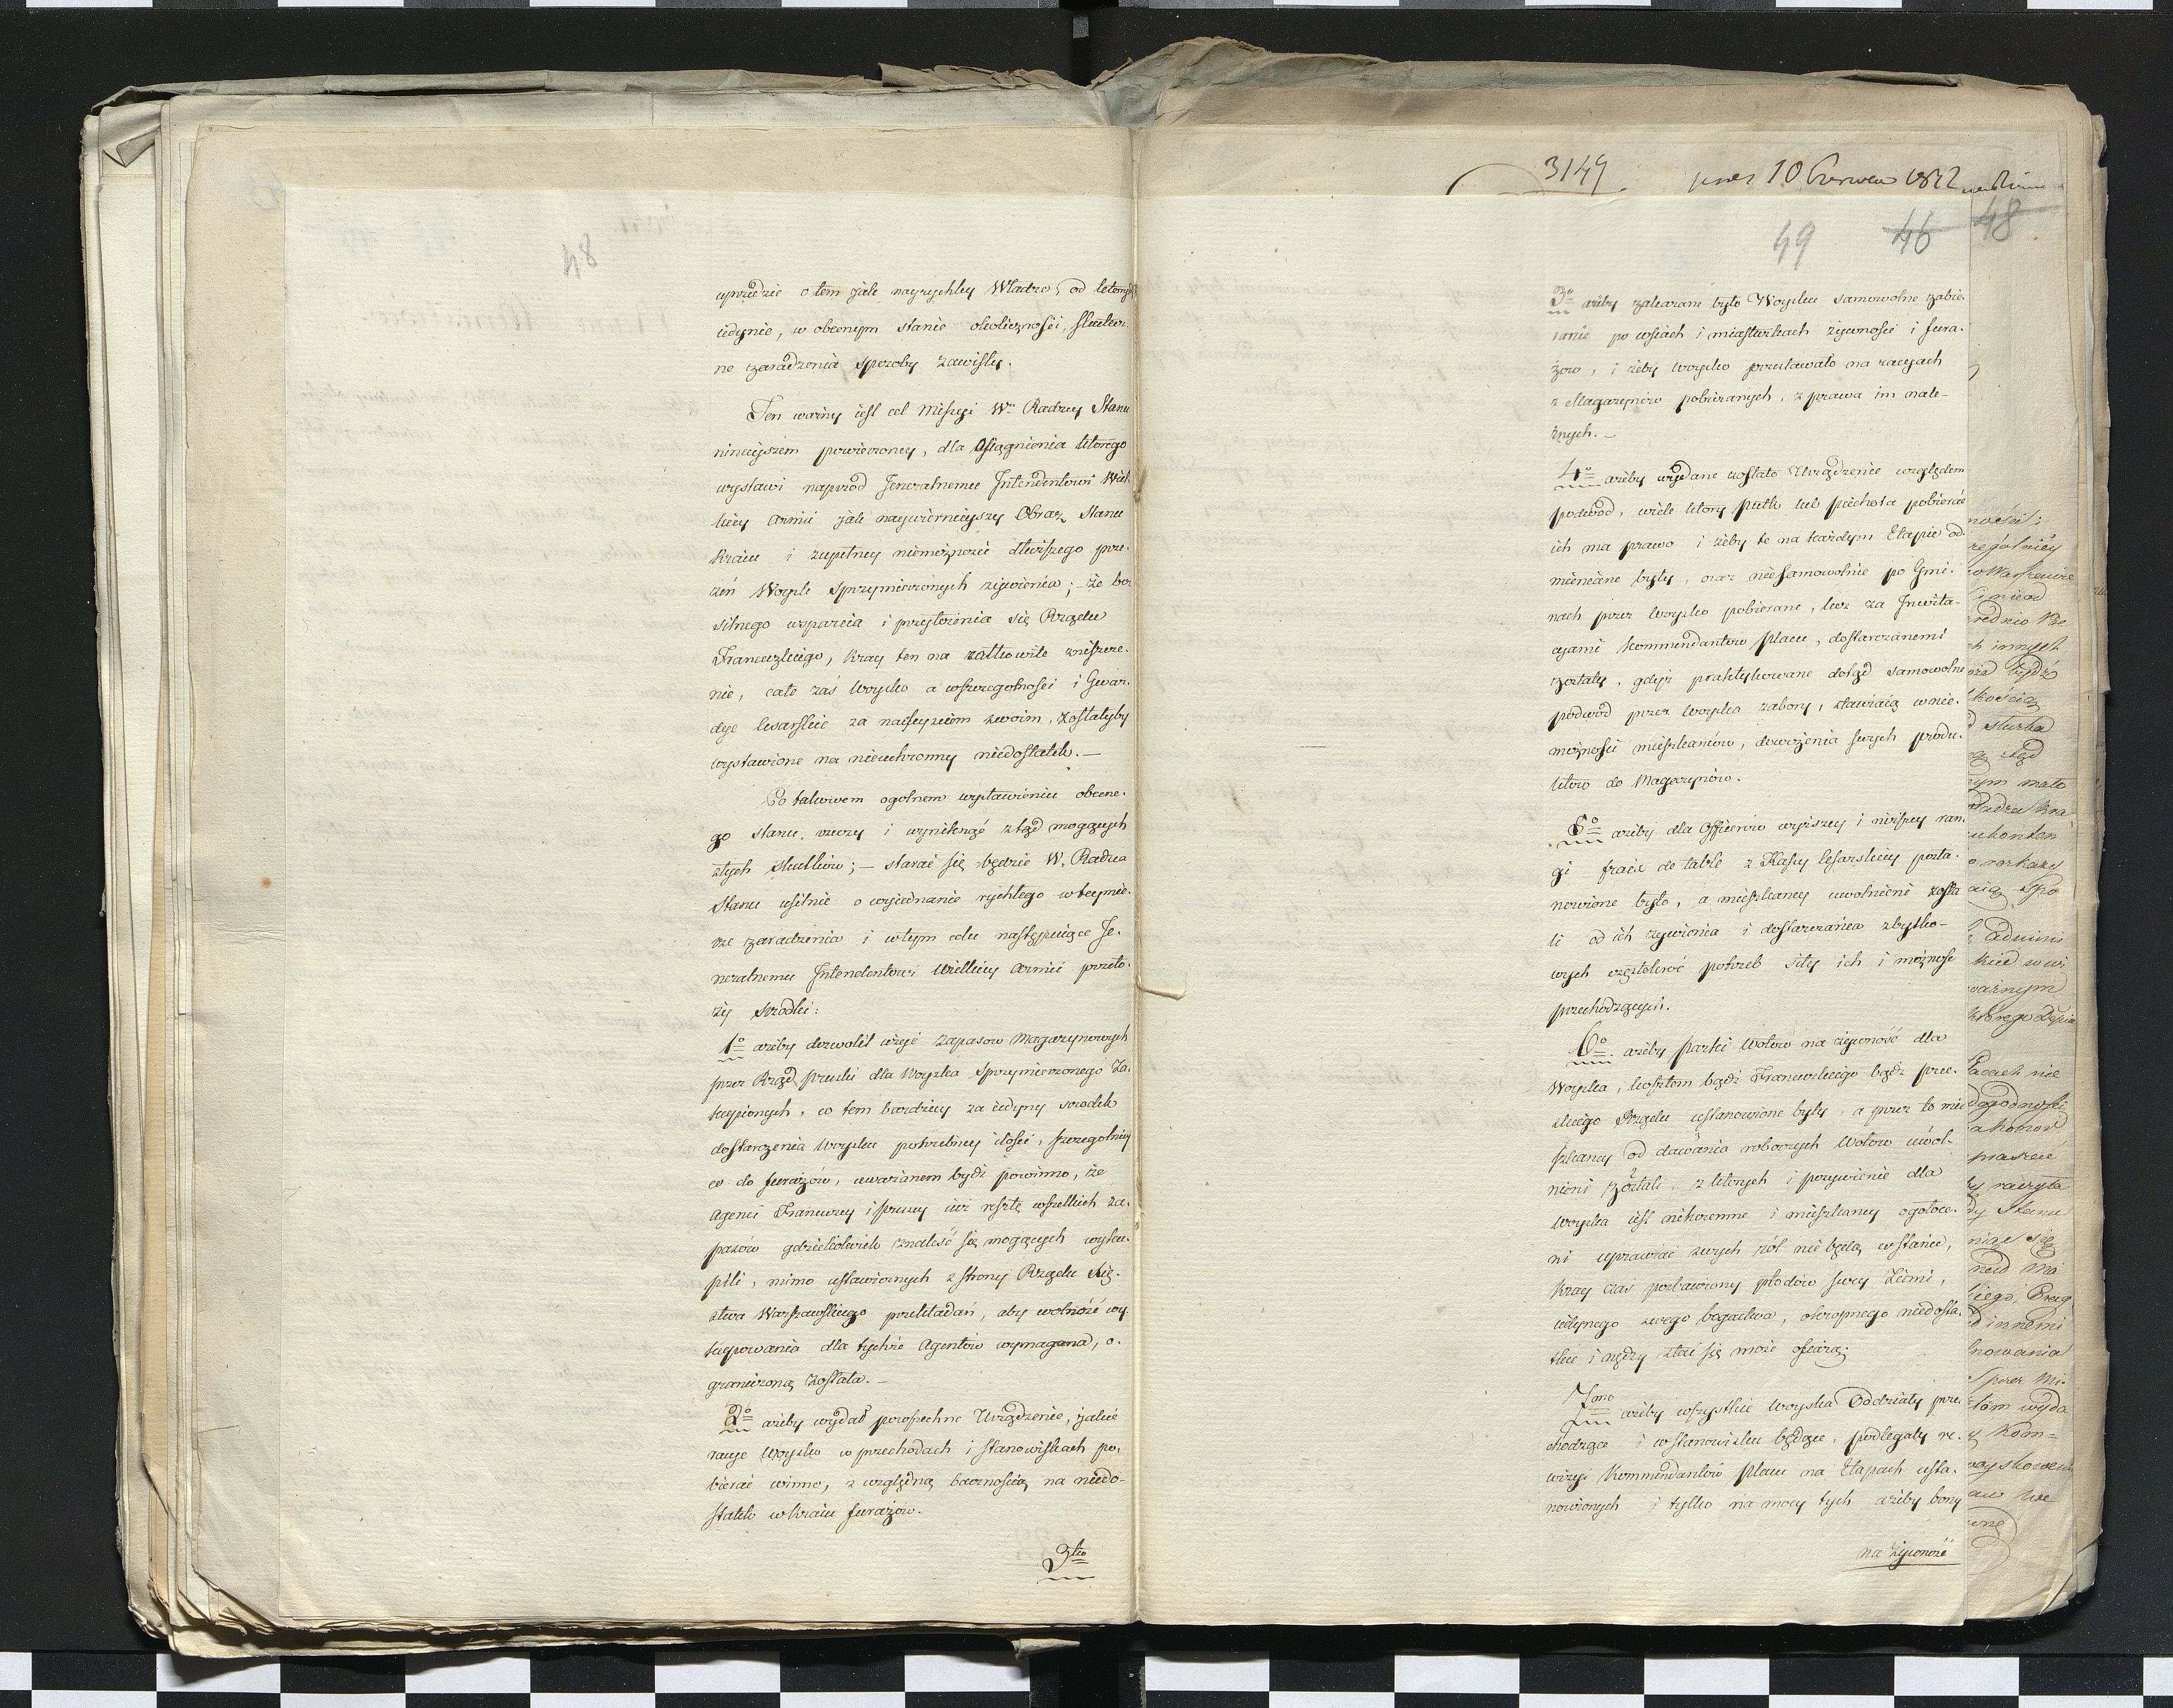 48
uprzedzić o tem jak nayrychley Władze, od których
iedynie, w obecnym stanie okoliczności, skutecz-
ne zaradzenia sposoby zawisły.
Ten ważny iest cel Missyi Wo Radzcy Stanu
ninieyszem powierzoney, dla Osiągnienia którego
wystawi naprzod Jeneralnemu Intendentowi Wiel
kiey Armii jak naywiernieyszy Obraz Stanu
kraiu i zupełney niemożności dłuższego prze-
zeń Woysk Sprzymierzonych żywienia; – że bez
silnego wsparcia i przyłożenia się Rządu
Francuzkiego, kray ten na całkowite zniszcze-
nie, całe zaś Woysko a wszczegolności i Gwar-
dye Cesarskie za nadeyściem swoim, zostałyby
wystawione na nieuchronny niedostatek. –
Po takowem ogolnem wystawieniu obecne-
go stanu rzeczy i wyniknąć ztąd mogących
złych skutków; – starać się będzie W. Radzca
Stanu usilnie o wyiednanie rychłego w tey mie-
rze zaradzenia i wtym celu następuiące Je-
neralnemu Intendentowi Wielkiey Armii przeło-
ży srodki:
1o ażeby dozwolił użyć zapasow Magazynowych
przez Rząd Pruski dla Woyska Sprzymierzonego Za-
kupionych, co tem bardziey za iedyny srodek
dostarczenia Woysku potrzebney ilości, szczegolniey
co do furażów, uważanem bydź powinno, że
Agenci Francuzcy i Pruscy iuż resztę wszelkich za-
pasów gdziekolwiek znaleść się mogących wyku-
pili, mimo ustawicznych z strony Rządu Xię-
stwa Warszawskiego przekładań, aby wolność wy-
kupowania dla tychże Agentów wymagana, o-
graniczoną została. –
2o ażeby wydał powszechne Urządzenie, jakie
racye Woysko w przechodach i stanowiskach po-
bierać winno, z względną bacznością na niedo-
statek w kraiu furażow.
3tio
3149 10 Czerwca 1812
49 46 48
3o ażeby zakazane było Woysku samowolne zabie-
ranie po wsiach i miasteczkach żywności i fura-
żow, i żeby Woysko przestawało na racyach
z Magazynów pobieranych, z prawa im nale-
żnych. –
4o ażeby wydane zostało Urządzenie względem
podwód, wiele który Pułk lub piechota pobierać
ich ma prawo i żeby te na każdym Etapie od-
mieniane były, oraz nie samowolnie po Gmi-
nach przez Woysko pobierane, lecz za Inwita-
cyami Kommendantow placu, dostarczanemi
zostały, gdyż praktykowane dotąd samowolne
podwód przez Woyska zabory, stawiaią w nie-
możności mieszkańców, dowożenia swych produ-
któw do Magazynów.
5o ażeby dla Officerow wyższey i niższey ran-
gi fraix de table z Kassy Cesarskiey posta-
nowione było, a mieszkancy uwolnieni zosta
li od ich żywienia i dostarczania zbytko-
wych częstokroć potrzeb siły ich i możność
przechodzących.
6o ażeby Parki Wołow na żywność dla
Woyska, kosztem bądź Francuzkiego bądź prus-
kiego Rządu ustanowione były, a przez to mie
szkancy od dawania roboczych Wołow uwol-
nieni zostali, z których i pożywienie dla
Woyska iest niekorzemne i mieszkancy ogołoce-
ni uprawiać swych ról nie będą wstanie,
kray zaś pozbawiony płodów swey Ziemi,
iedynego swego bogactwa, okropnego niedosta-
tku i nędzy stać się może ofiarą.
7mo ażeby wszystkie Woyska Oddziały prze-
chodzące i w stanowisku będące, podlegały re-
wizyi Kommendantów placu na Etapach usta-
nowionych i tylko na mocy tych ażeby bony
na żywność